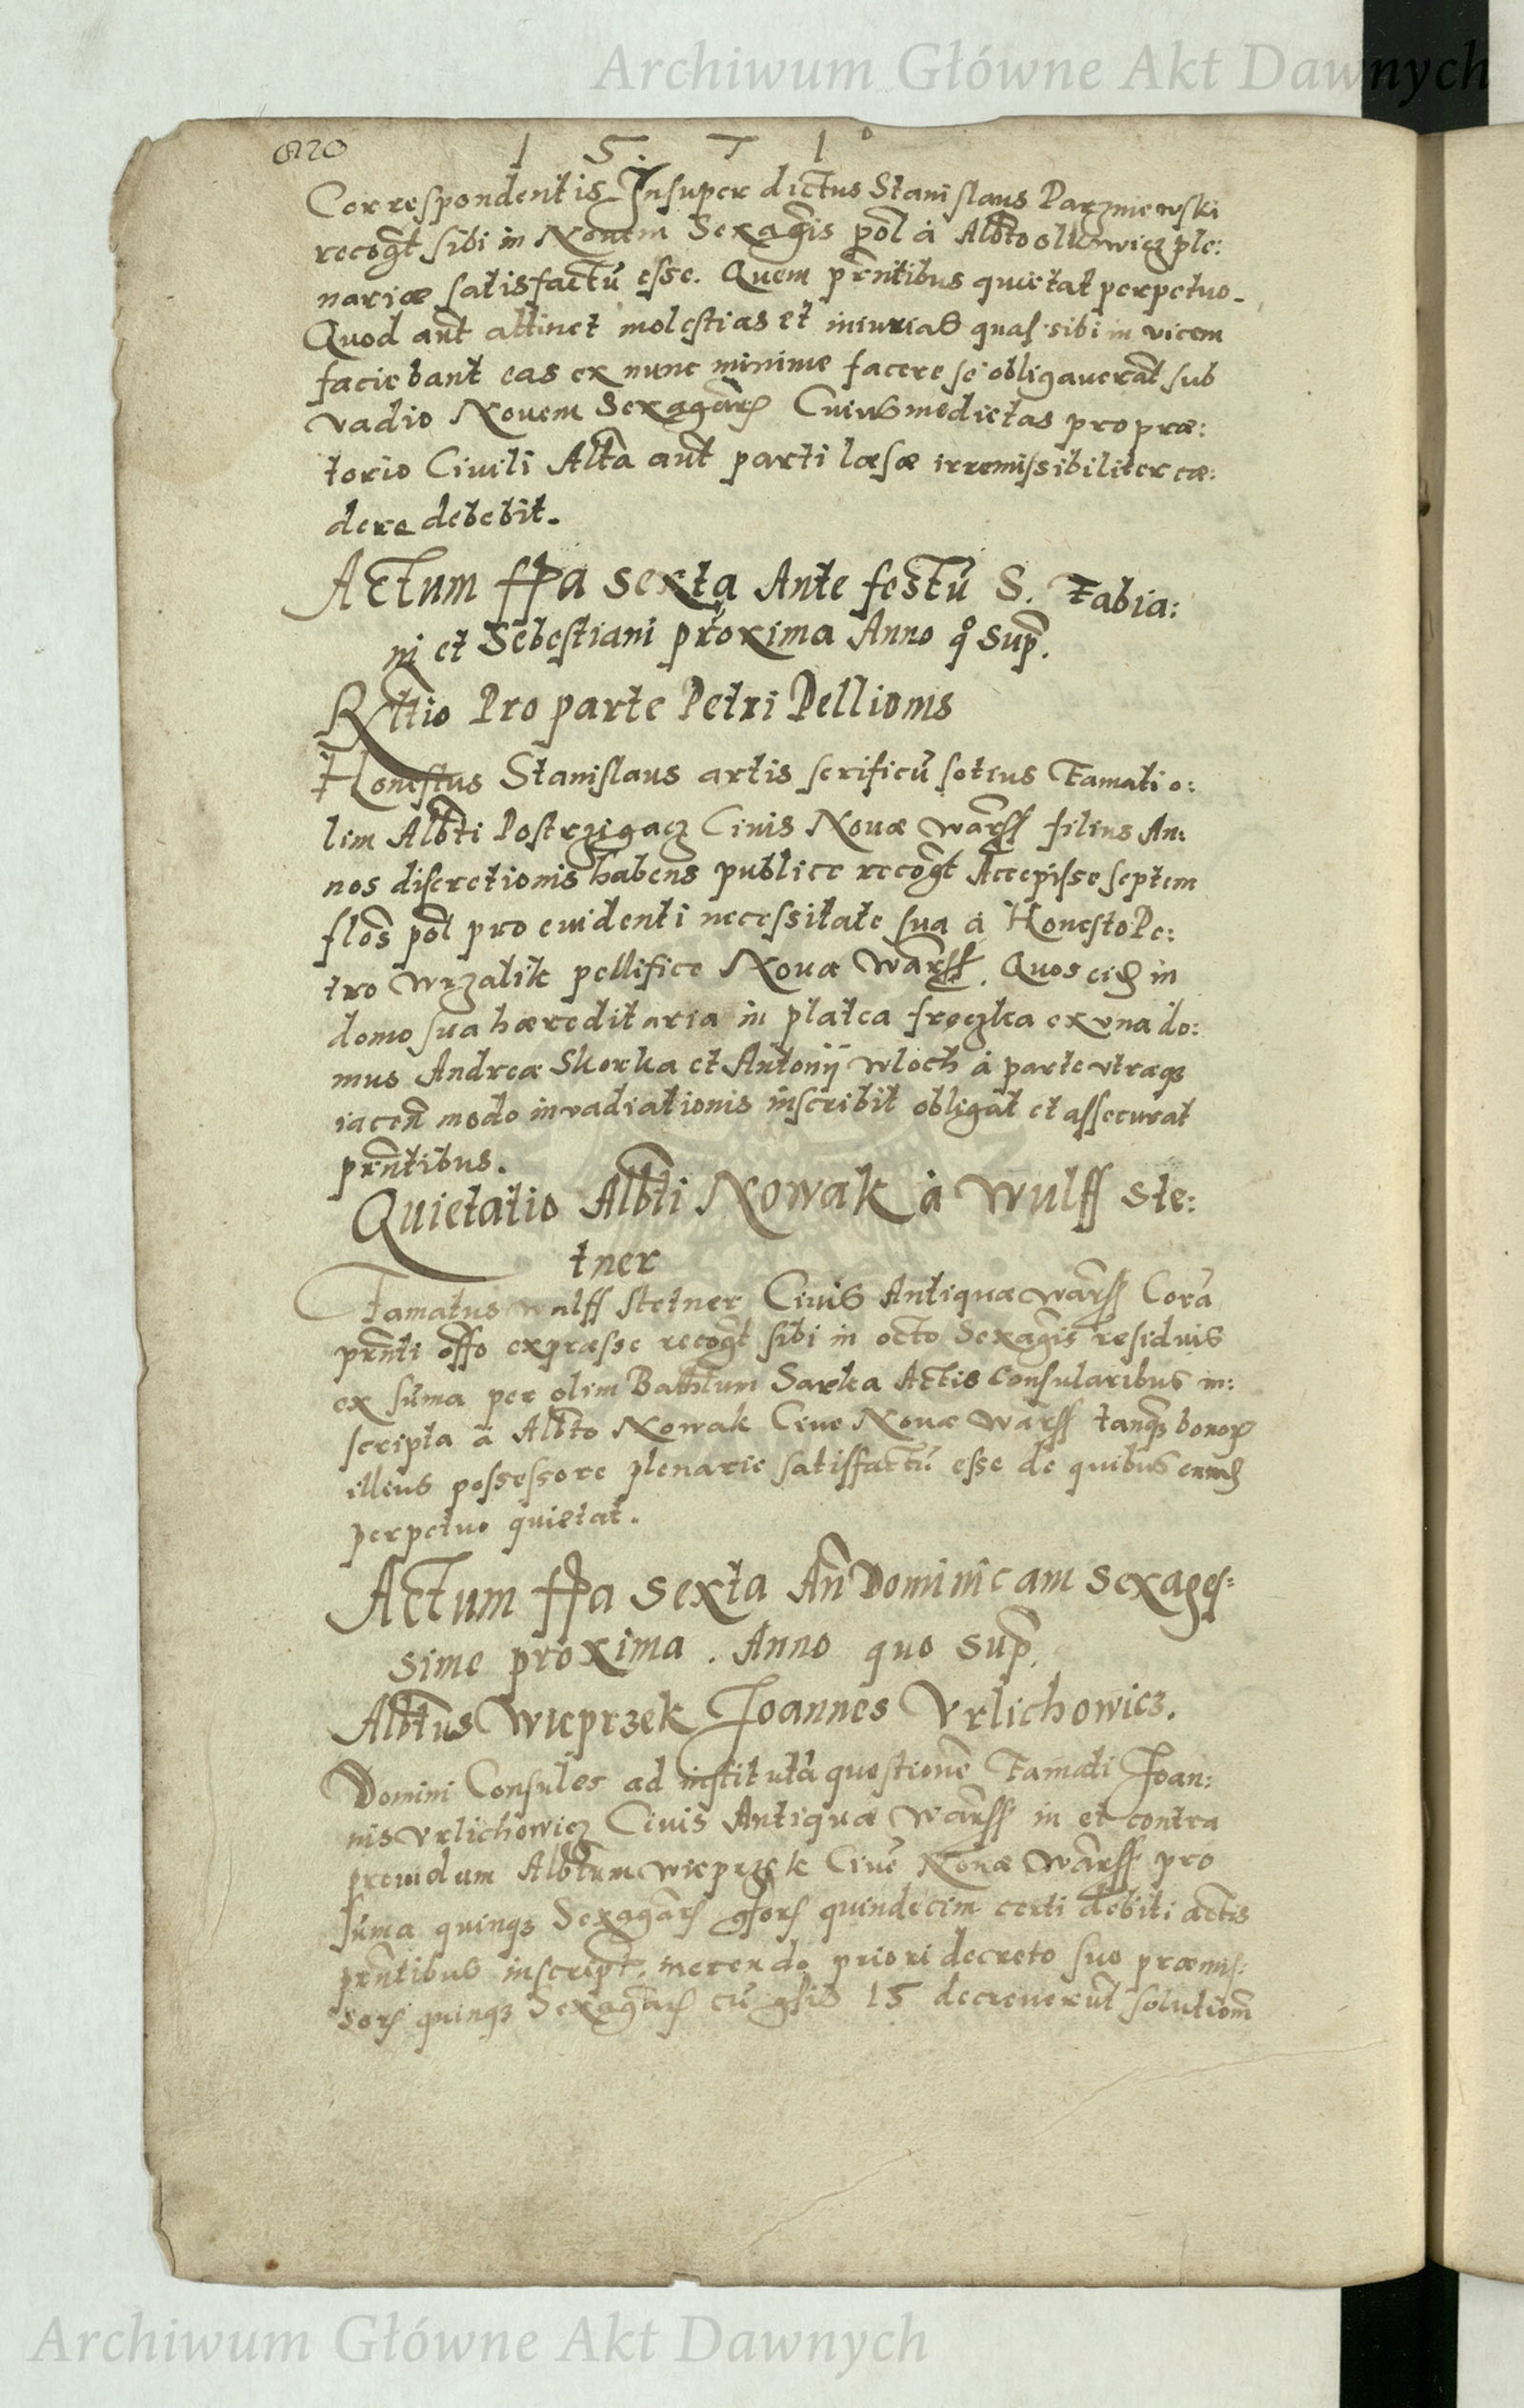 Archiwum Główne Akt Dawnych
820 1 5 7 1°
Correspondentis Insuper dictus Stanislaus Parzniewski
recogt sibi in Nouem Sexagis pol à Albto olkowicz ple:
nariæ satisfactū esse. Quem prntibus quietat perpetuo.
Quod aut attinet molestias et iniurias quas sibi in vicem
faciebant eas ex nunc minime facere se obligauerat sub
vadio Nouem Sexagar Cuius medietas pro præ:
torio Ciuili Alta aut parti læsæ irremissibiliter cæ:
dere debebit.
Actum ffa sexta Ante festū S. Fabia:
ni et Sebestiani proxima Anno qº sup.
Rttio Pro parte Petri Pellionis
Honestus Stanislaus artis serificū sotius Famati o:
lim Albti Postrzigacz Ciuis Nouæ Warss filius An:
nos discretionis habens publice recogt Accepisse septem
flos pol pro euidenti necessitate sua à Honesto Pe:
tro Wrzalik pellifice Nouæ Warss. Quos eid in
domo sua hæreditaria in platea freczka ex vna do:
mus Andreæ Skorka et Antonij Wloch à parte vtraq
iacen modo invadiationis inscribit obligat et assecurat
prntibus.
Quietatio Albti Nowak à Wulff Ste:
tner
Famatus Wulff Stetner Ciuis Antiquæ Warss Corā
prnti offo expræsse recogt sibi in octo Sexagis residuis
ex sūma per olim Bathtum Sarka Actis Consularibus in:
scripta à Albto Nowak Ciue Nouæ Warss tanq bonor
illius possessore plenarie satisfactū esse de quibus eund
perpetuo quietat.
Actum ffa sexta An Dominicam sexages:
sime proxima. Anno quo sup.
Albtus Wieprzek Joannes Vrlichowicz.
Domini Consules ad institutā questionē Famati Joan:
nis Vrlichowicz Ciuis Antiquæ Warss in et contra
prouidum Albtum Wieprzek Ciuē Nouæ Warss pro
sūma quinq Sexagar gsor quindecim certi debiti actis
prntibus inscript. inerendo priori decreto suo præmis:
sor quinq Sexagar cū gsis 15 decreuerut solutiom
Archiwum Główne Akt Dawnych